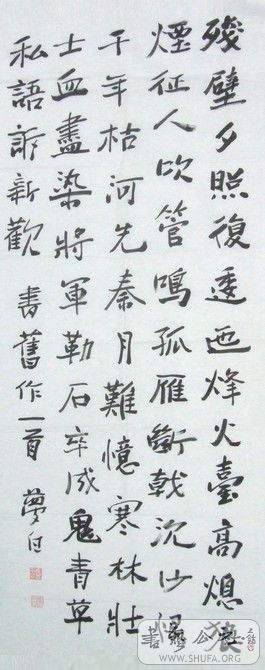 殘壁夕照復逶迤烽火臺高熄狼
煙征人吹管鳴孤雁斷戟沉沙
千年枯河先秦月難憶寒林壯
士血盡染將軍勒石卒成鬼青草
私語訴新歡 書舊作一首 夢
書藝公社
WWW.SHUFA.ORG